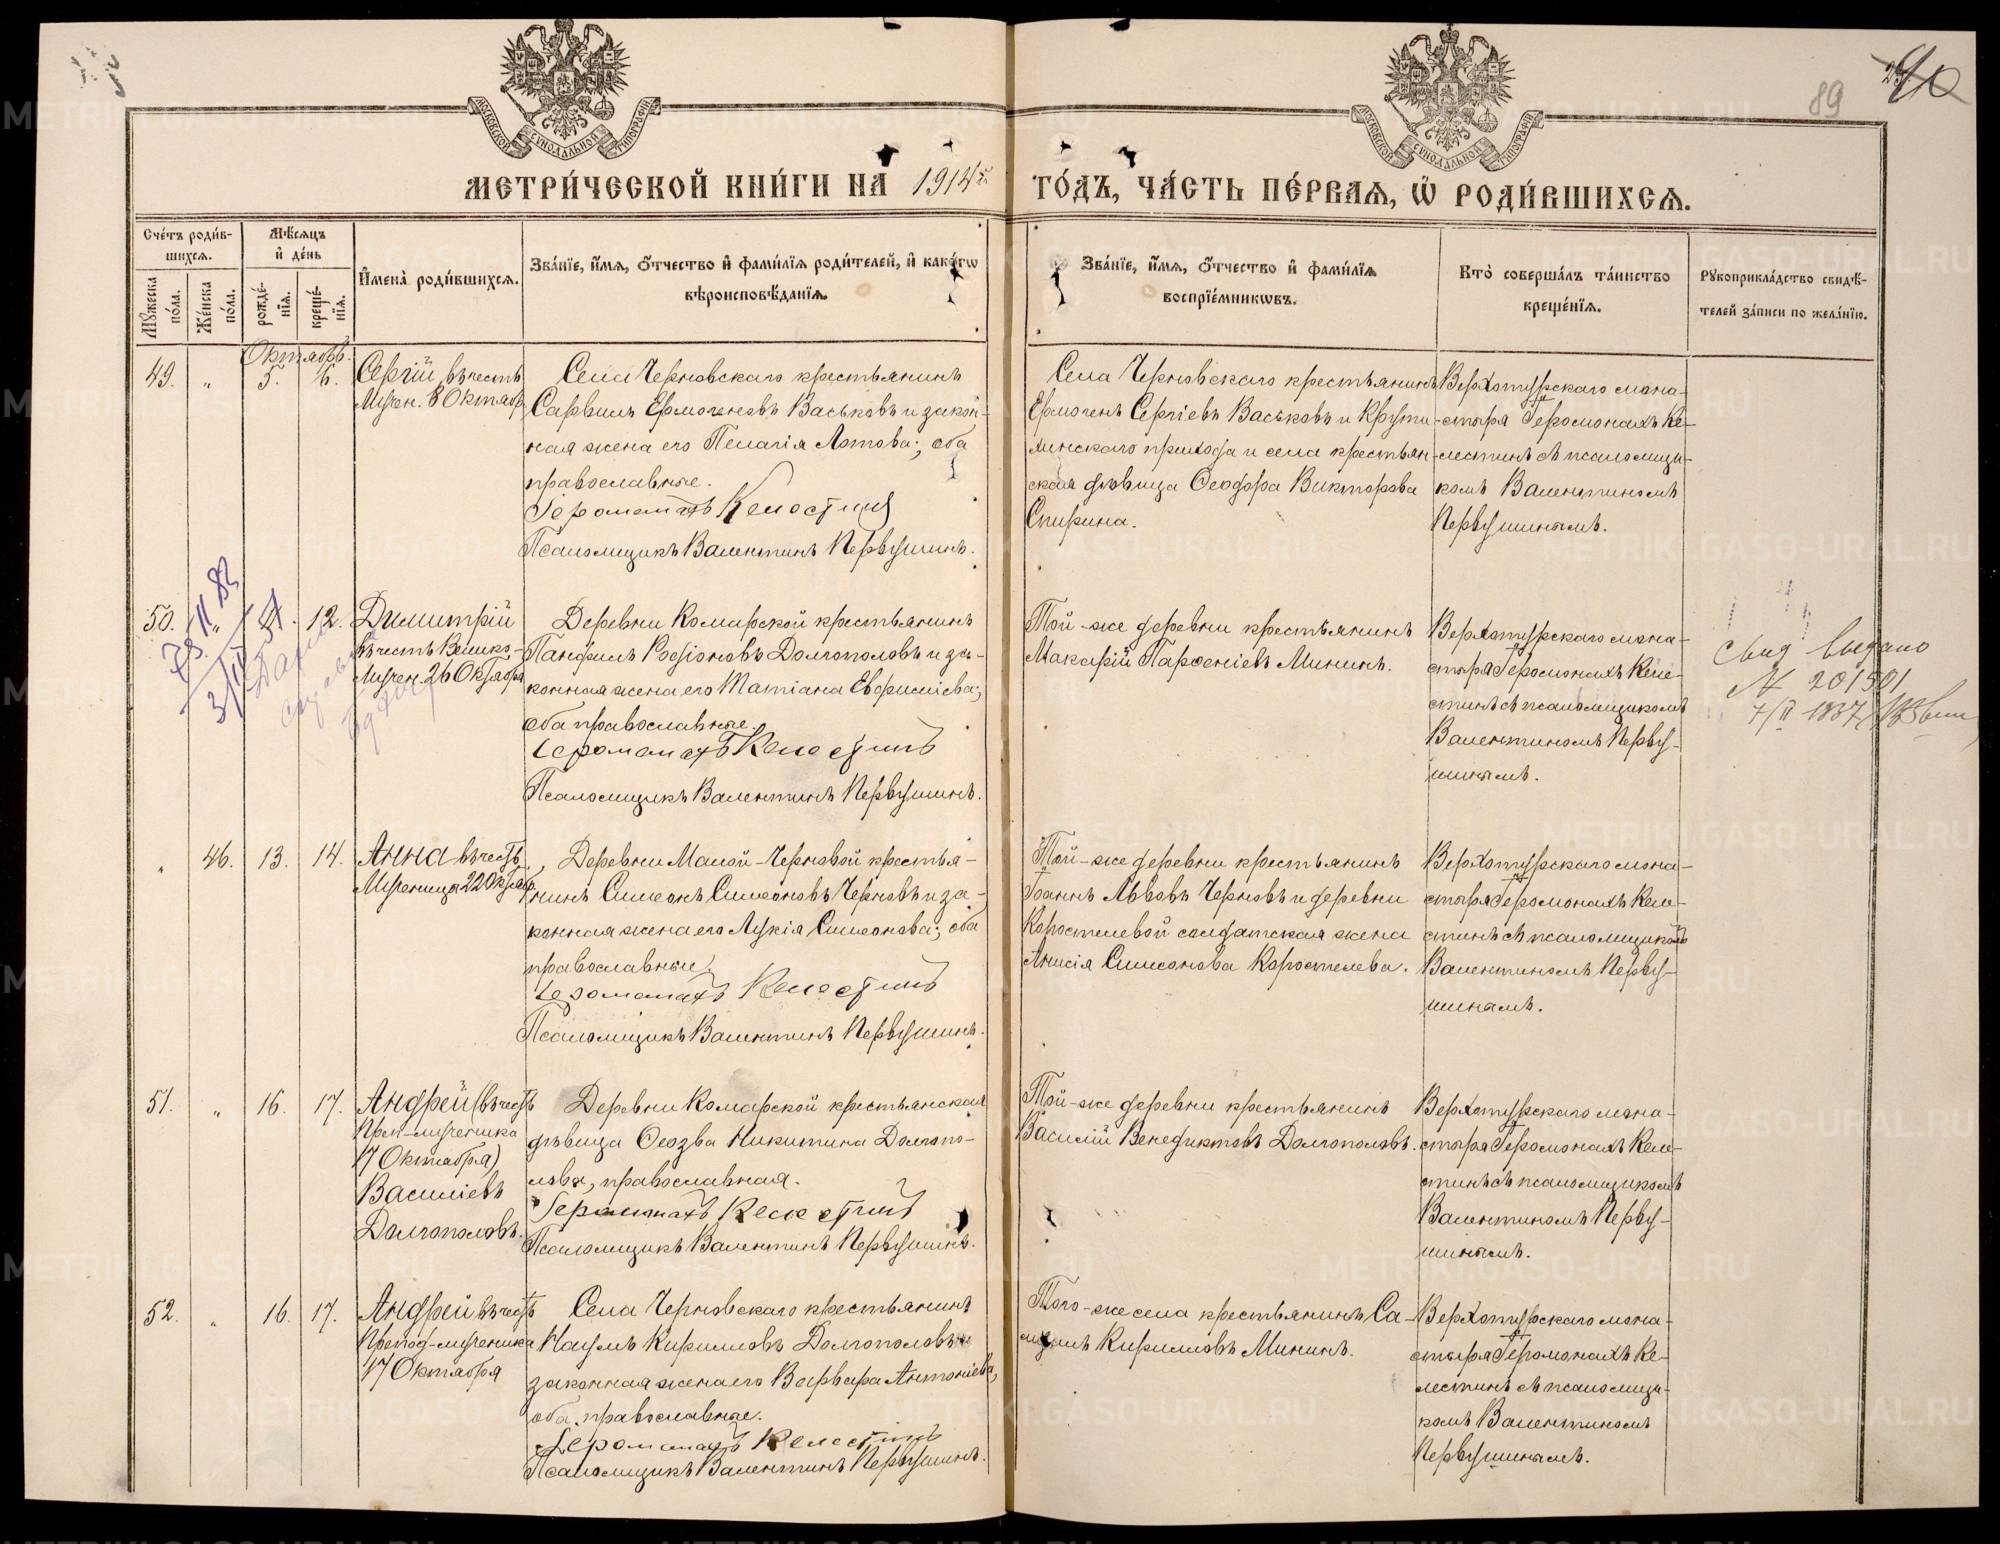 89
МОСКОВСКОЙ СѴНОДАЛЬНОЙ ТИПОГРАФІИ
МОСКОВСКОЙ СѴНОДАЛЬНОЙ ТИПОГРАФІИ
МЕТРИ́ЧЕСКОЙ КНИ́ГИ НА 1914й
ГО́ДЪ, ЧА́СТЬ ПЕ́РВАЯ, Ѿ РОДИ́ВШИХСЯ.
Сче́тъ роди́вшихся.
Мꙋ́жеска по́ла.
Же́нска по́ла.
Мѣ́сяцъ и҆ де́нь
рожде́нїя.
креще́нїя.
И҆мена̀ роди́вшихся.
Зва́нїе, и҆́мя, ѻ҆́тчество и҆ фами́лїя роди́телей, и҆ како́гѡ
вѣроисповѣ́данїя.
Зва́нїе, и҆́мя, ѻ҆́тчество и҆ фами́лїя
воспрїе́мникѡвъ.
Кто̀ соверша́лъ та́инство
креще́нїя.
Рꙋкоприкла́дство свидѣ́-
телей за́писи по жела́нїю.
Октябрь.
49. " 5. 6.
Сергій, въ честь
Мучен. 8 Октяб.
Села Черновскаго крестьянинъ
Сарвилъ Ермогеновъ Васьковъ и закон-
ная жена его Пелагія Аѳтова; оба
православные.
Іеромонахъ Келестинъ
Псаломщикъ Валентинъ Первушинъ.
Села Черновскаго крестьянинъ
Ермогенъ Сергіевъ Васьковъ и Крути-
хинскаго прихода и села крестьян-
ская дѣвица Ѳеодора Викторова
Спирина.
Верхотурскаго мона-
стыря Іеромонахъ Ке-
лестинъ съ псаломщи-
комъ Валентиномъ
Первушинымъ.
50. " 12.
Димитрій
въ честь Велико-
Мучен. 26 Октября
Деревни Комарской крестьянинъ
Панфилъ Родіоновъ Долгополовъ и за-
конная жена его Татіана Евфиміева;
оба православные.
Іеромонахъ Келестинъ
Псаломщикъ Валентинъ Первушинъ.
Той-же деревни крестьянинъ
Макарій Парѳеніевъ Мининъ.
Верхотурскаго мона-
стыря Іеромонахъ Келе-
стинъ съ псаломщикомъ
Валентиномъ Перву-
шинымъ.
Свид выдано
№ 201501
" 46. 13. 14.
Анна въ честь
Мученицы 22 Октяб.
Деревни Малой-Черновой крестья-
нинъ Симеонъ Симеоновъ Черновъ и за-
конная жена его Лукія Симеонова; оба
православные.
Іеромонахъ Келестинъ
Псаломщикъ Валентинъ Первушинъ.
Той-же деревни крестьянинъ
Іоаннъ Львовъ Черновъ и деревни
Коростелевой солдатская жена
Анисія Симеонова Коростелева.
Верхотурскаго мона-
стыря Іеромонахъ Келе-
стинъ съ псаломщикомъ
Валентиномъ Перву-
шинымъ.
51. " 16. 17.
Андрей (въ честь
Преп-мученика
17 Октября)
Василіевъ
Долгополовъ.
Деревни Комарской крестьянская
дѣвица Ѳеозва Никитина Долгопо-
лова, православная.
Іеромонахъ Келестинъ
Псаломщикъ Валентинъ Первушинъ.
Той-же деревни крестьянинъ
Василій Венедиктовъ Долгополовъ.
Верхотурскаго мона-
стыря Іеромонахъ Келе-
стинъ съ псаломщикомъ
Валентиномъ Перву-
шинымъ.
52. " 16. 17.
Андрей въ честь
Препод-мученика
17 Октября
Села Черновскаго крестьянинъ
Наумъ Кирилловъ Долгополовъ и
законная жена его Варвара Антоніева,
оба православные.
Іеромонахъ Келестинъ
Псаломщикъ Валентинъ Первушинъ.
Того-же села крестьянинъ Са-
муилъ Кирилловъ Мининъ.
Верхотурскаго мона-
стыря Іеромонахъ Ке-
лестинъ съ псаломщи-
комъ Валентиномъ
Первушинымъ.
METRIKI.GASO-URAL.RU